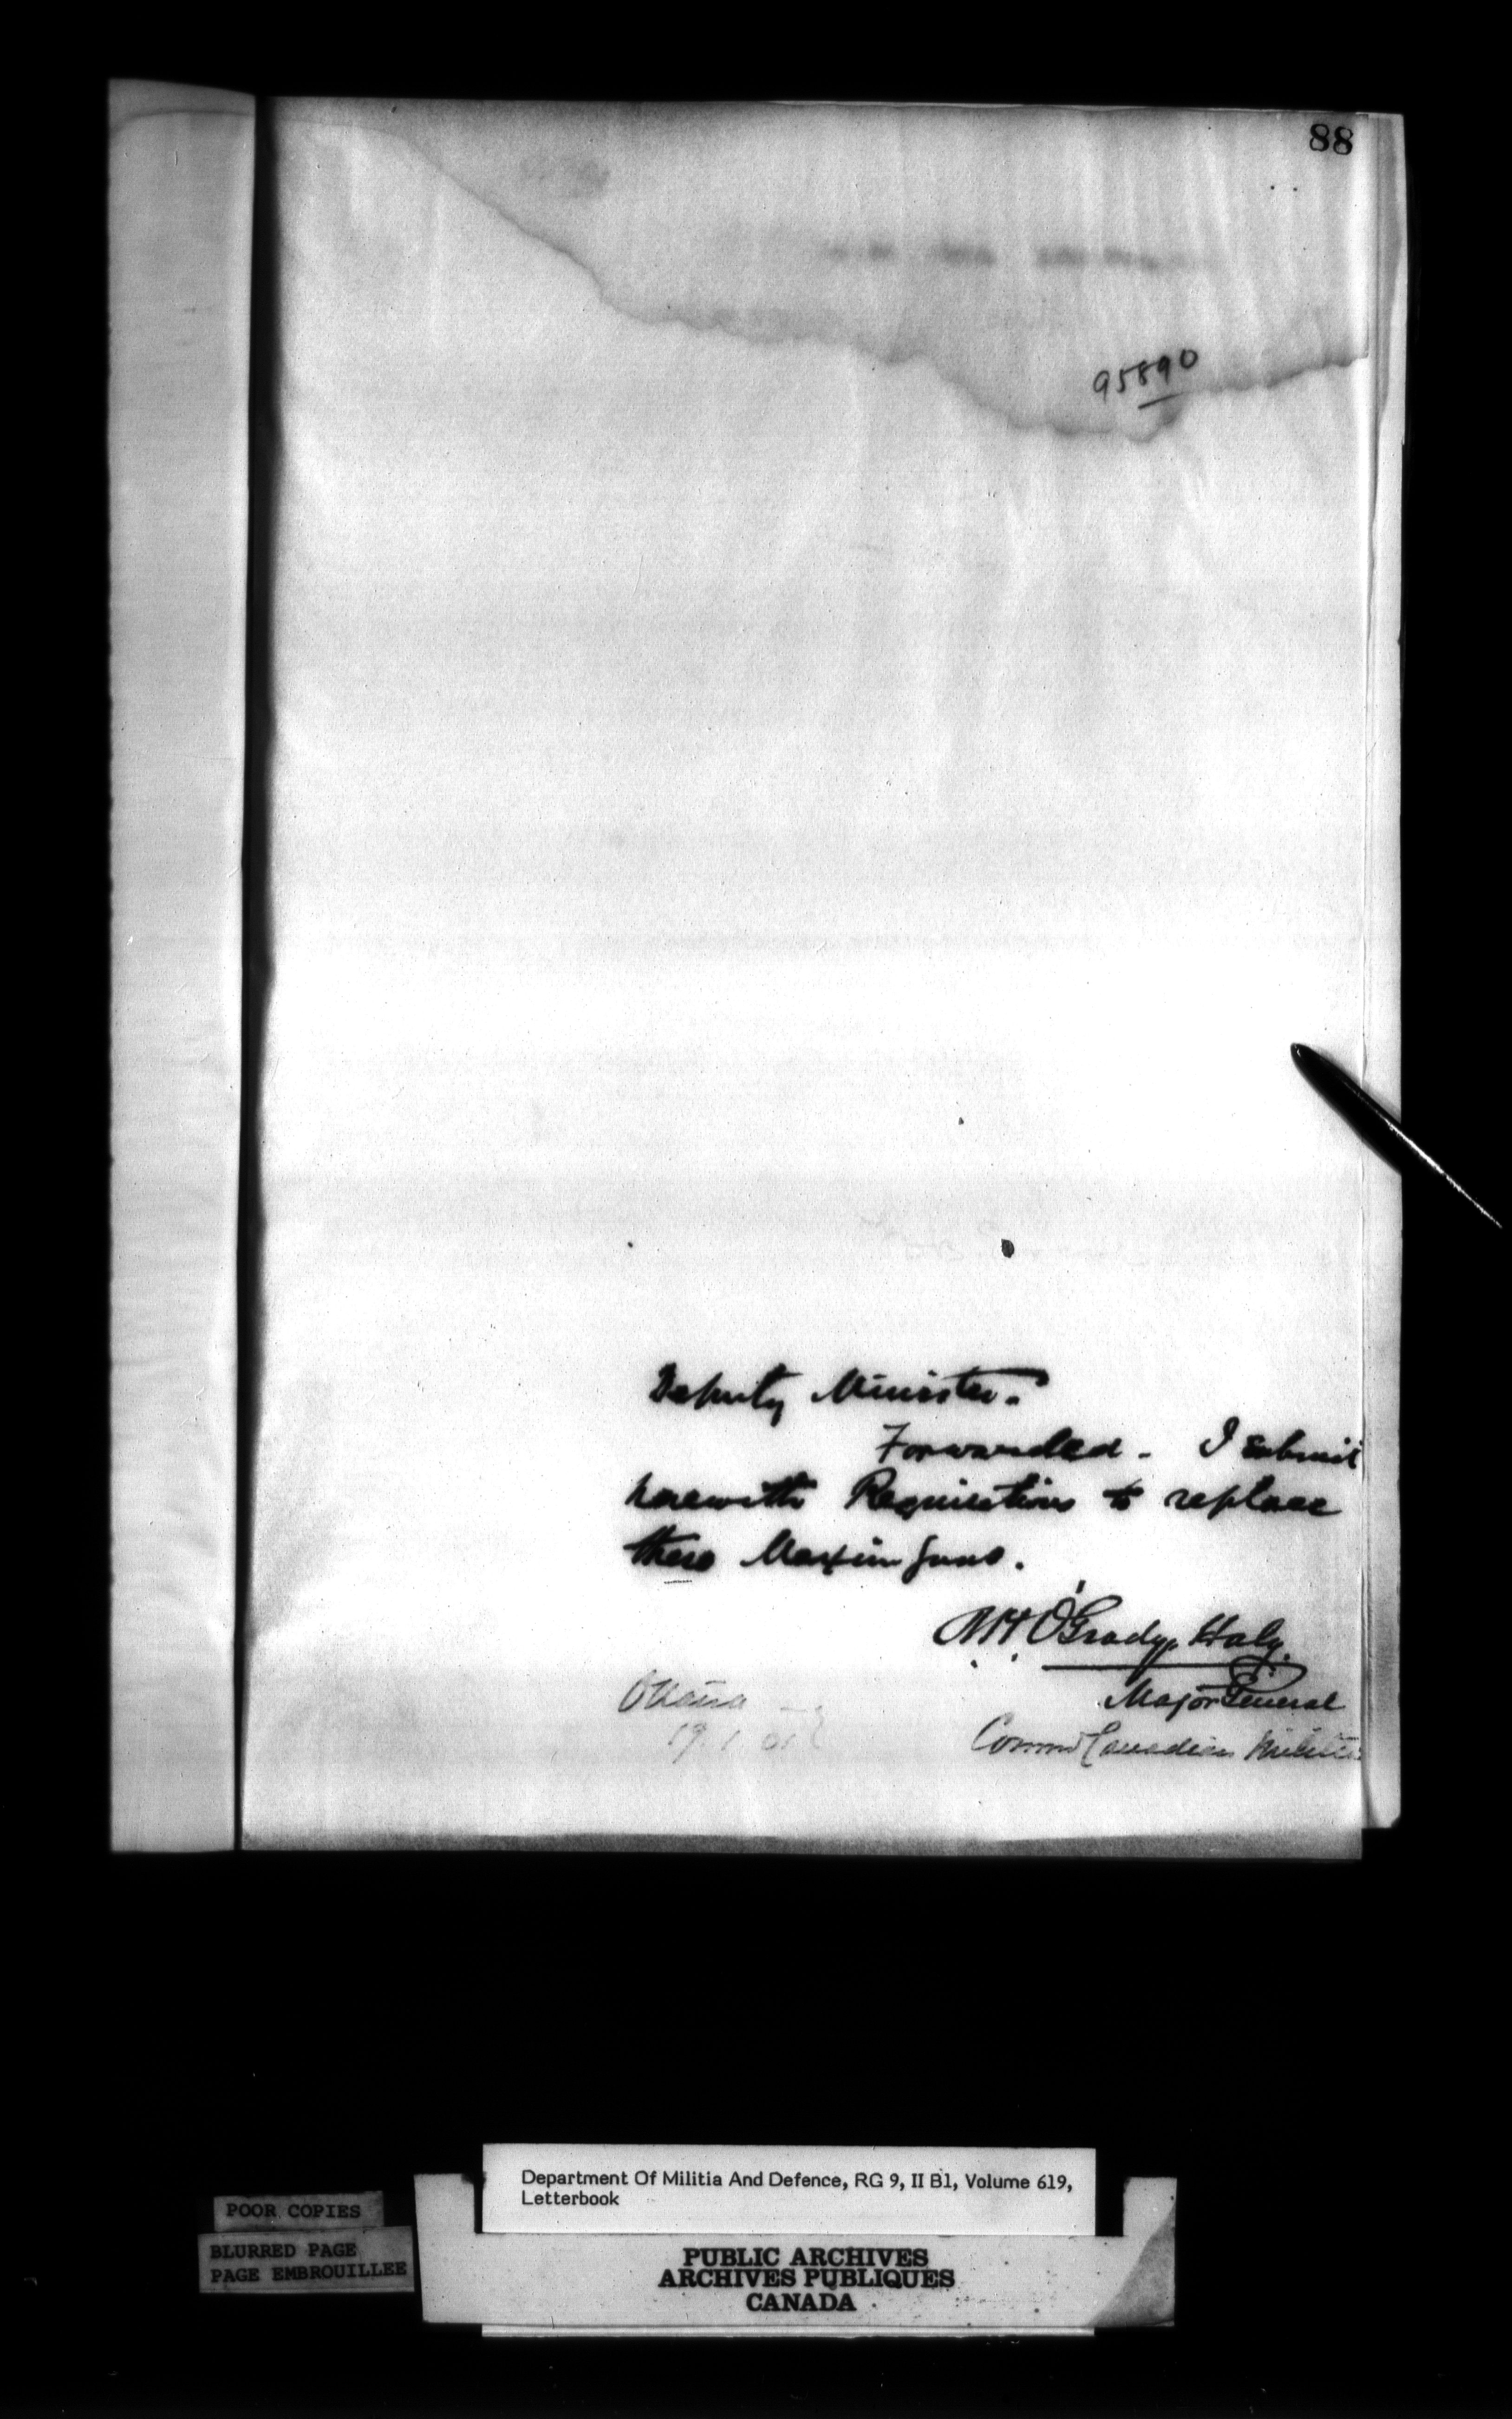 88
95890
Deputy Minister.
Forwarded. I submit
herewith Requisitions to replace
these Maxim Guns.
RH O'Grady Haly
Major General
Commdg Canadian Militia
Ottawa
19.1.01
Department Of Militia And Defence, RG 9, II B1, Volume 619,
Letterbook
POOR COPIES
BLURRED PAGE
PAGE EMBROUILLEE
PUBLIC ARCHIVES
ARCHIVES PUBLIQUES
CANADA